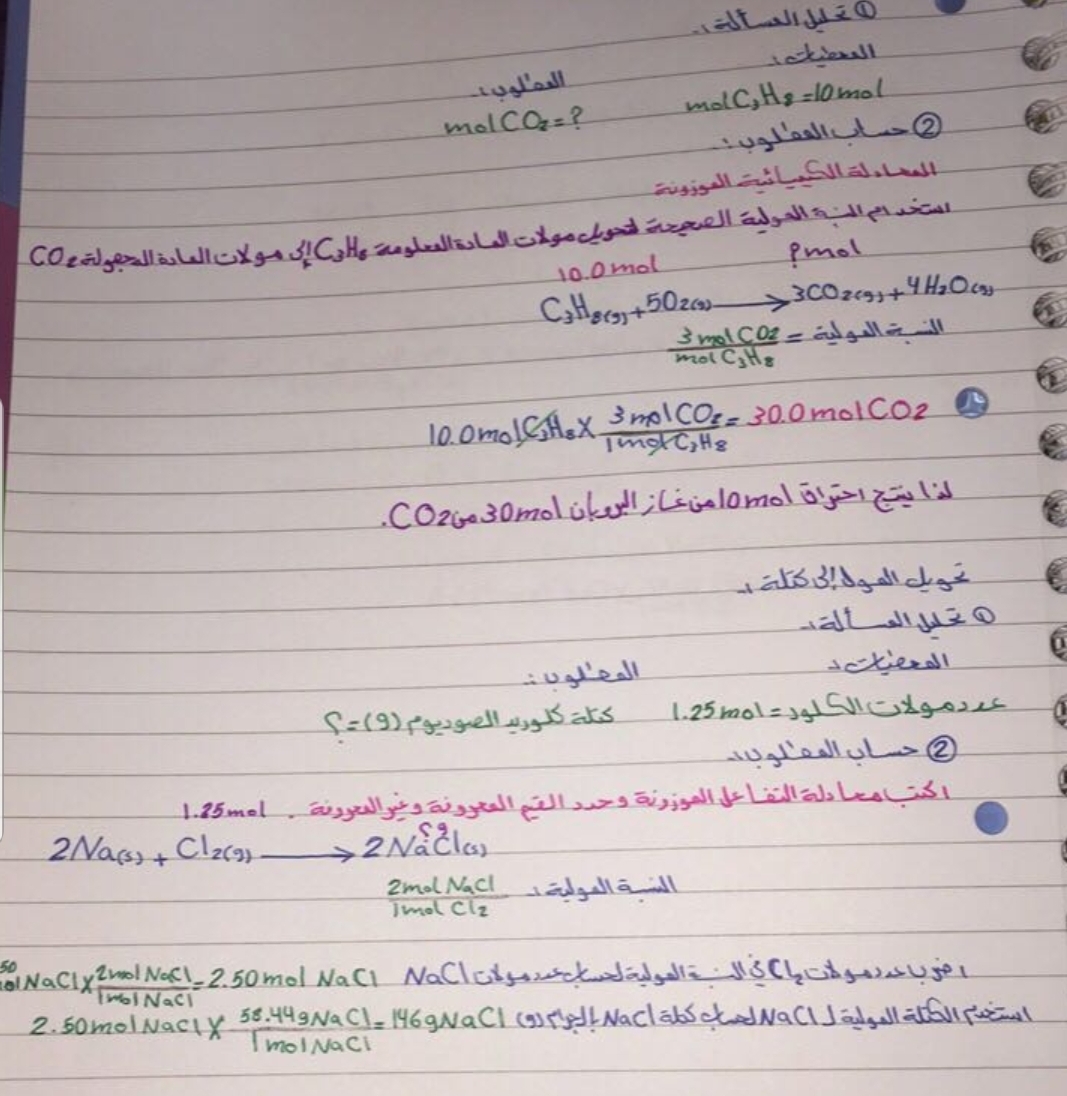 ① تحليل المسألة:
المعطيات: المطلوب:
molC3H8=10mol molCO2=?
② حساب المطلوب:
المعادلة الكيميائية الموزونة
استخدام النسبة المولية الصحيحة لتحويل مولات المادة المعلومة C3H8 إلى مولات المادة المجهولة CO2
10.0mol ?mol
C3H8(g)+5O2(g)→3CO2(g)+4H2O(g)
النسبة المولية = 3molCO2/molC3H8
10.0molC3H8×3molCO2/1molC3H8=30.0molCO2
لذا ينتج احتراق 10mol من غاز البروبان 30mol من CO2.
تحويل المول إلى كتلة:
① تحليل المسألة:
المعطيات: المطلوب:
عدد مولات الكلور=1.25mol كتلة كلوريد الصوديوم (g)=؟
② حساب المطلوب:
اكتب معادلة التفاعل الموزونة وحدد القيم المعروفة وغير المعروفة. 1.25mol
؟g
2Na(s)+Cl2(g)→2NaCl(s)
النسبة المولية: 2molNaCl/1mol Cl2
اضرب عدد مولات Cl2 في النسبة المولية لحساب عدد مولات NaCl
50 olNaCl×2molNaCl/1molNaCl=2.50mol NaCl
استخدم الكتلة المولية لـ NaCl لحساب كتلة NaCl بالجرام (g)
2.50molNaCl×58.44gNaCl/1molNaCl=146gNaCl